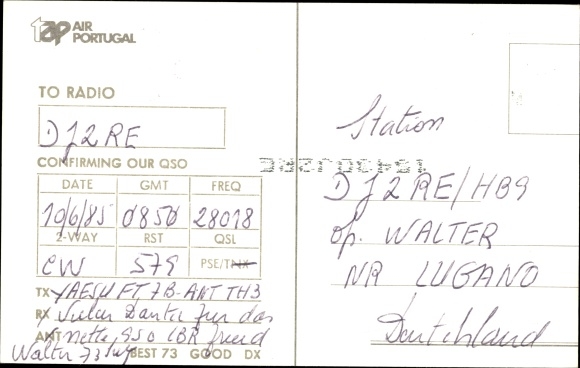 tap AIR
PORTUGAL
TO RADIO
DJ2RE
CONFIRMING OUR QSO
DATE GMT FREQ
10/6/85 0850 28018
2-WAY RST QSL
CW 579 PSE/TNX
TX YAESU FT 7B - ANT TH3
RX Vielen Danke fur das
ANT nette, QSO LBR freund
Walter 73
BEST 73 GOOD DX
Station
DJ2RE/HB9
op. WALTER
NR LUGANO
Deutchland